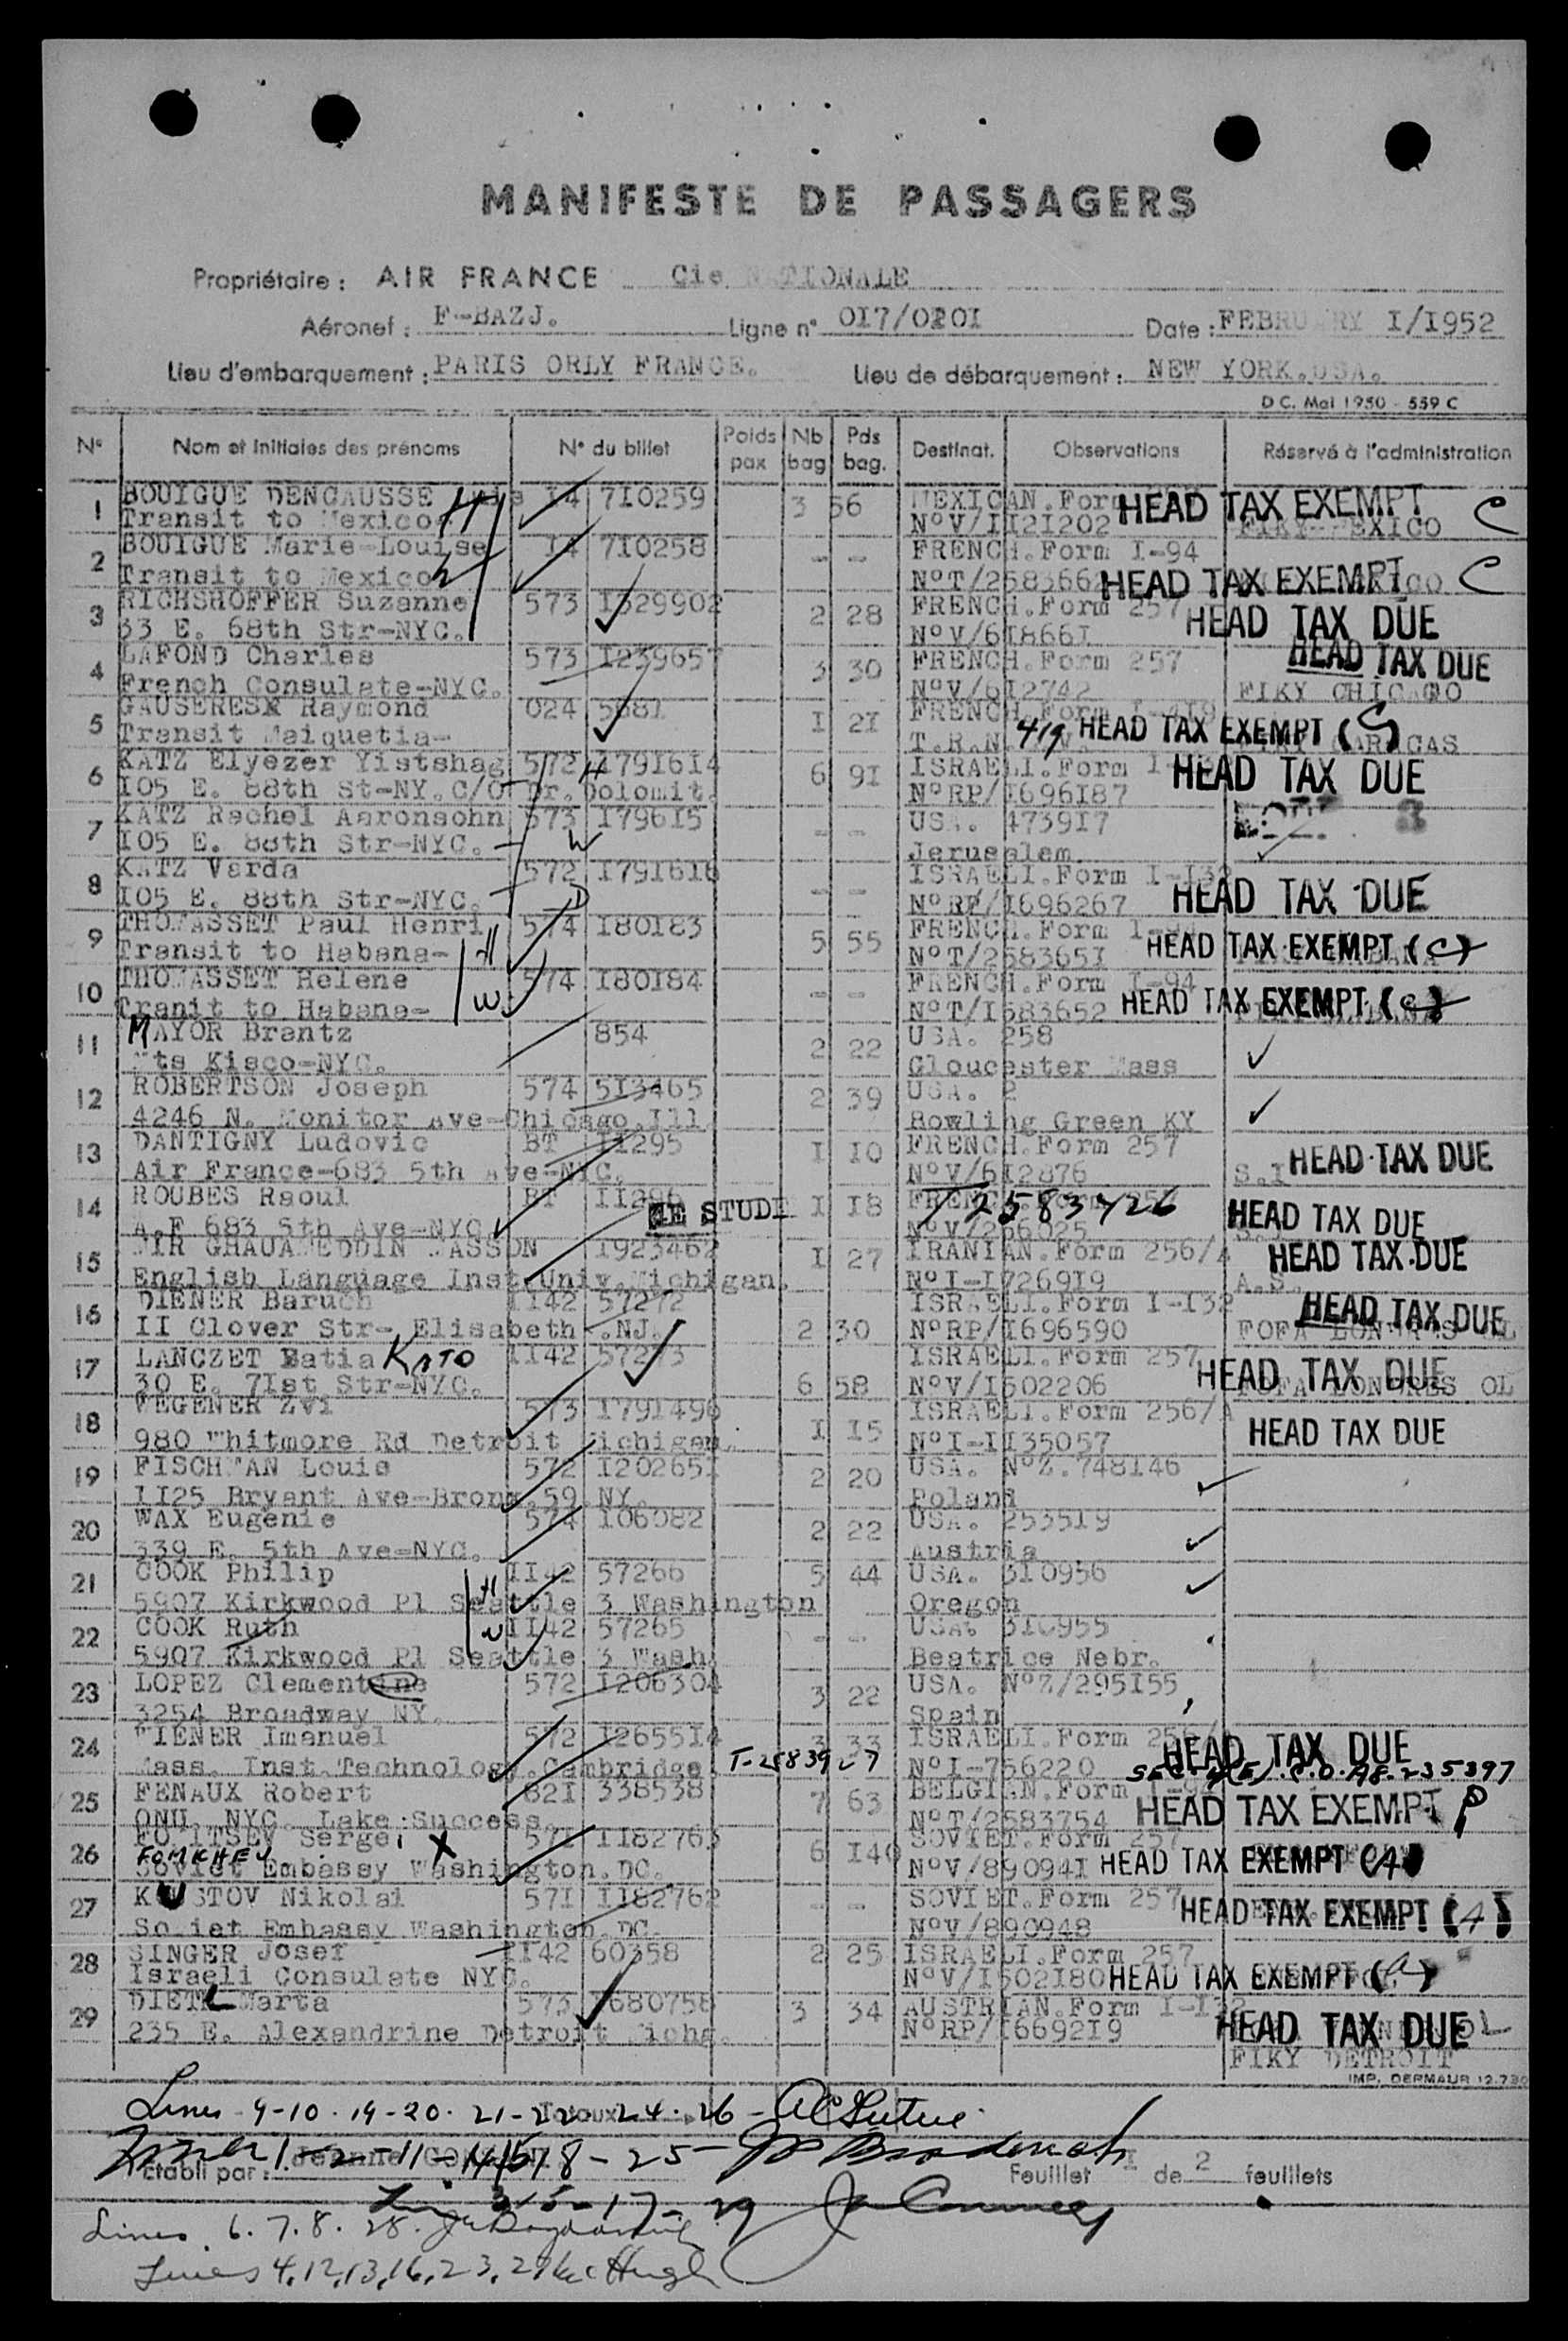 MANIFESTE DE PASSAGERS
Propriétaire : AIR FRANCE Cie NATIONALE
Aéronef : F-BAZJ. Ligne n° 0I7/0201 Date : FEBRUARY I/I952
Lieu d'embarquement : PARIS ORLY FRANCE. Lieu de débarquement : NEW YORK.USA.
D C. Mai 1950 - 559 C
N° Nom et initiales des prénoms N° du billet Poids pax Nb bag Pds bag. Destinat. Observations Réservé à l'administration
1 BOUIGUE DENCAUSSE I4 7I0259 3 56 MEXICAN.Form HEAD TAX EXEMPT C
Transit to Mexico- H N°V/II2I202 FIKY-MEXICO
2 BOUIGUE Marie-Louise I4 7I0258 -- -- FRENCH.Form I-94
Transit to Mexico W N°T/2583662 HEAD TAX EXEMPT C
3 RICHSHOFFER Suzanne 573 I329902 2 28 FRENCH.Form 257 HEAD TAX DUE
33 E. 68th Str-NYC. N°V/6I866I
4 LAFOND Charles 573 I239657 3 30 FRENCH.Form 257 HEAD TAX DUE
French Consulate-NYC. N°V/6I2742 FIKY CHICAGO
5 GAUSERESX Raymond 024 558I I 2I FRENCH.Form I-4I9
Transit Maiquetia- T.R.N 419 HEAD TAX EXEMPT (C) CARACAS
6 KATZ Elyezer Yistshag 572 I79I6I4 6 9I ISRAELI.Form I- HEAD TAX DUE
I05 E. 88th St-NY.C/O Dr.Dolomit. H N°RP/I696I87
7 KATZ Rachel Aaronsohn 573 I796I5 -- -- USA. 4739I7 3
I05 E. 88th Str-NYC.- W Jerusalem
8 KATZ Varda 572 I79I6I6 -- -- ISRAELI.Form I-I32
I05 E. 88th Str-NYC. D N°RP/I696267 HEAD TAX DUE
9 THOMASSET Paul Henri 574 I80I83 5 55 FRENCH.Form I-94
Transit to Habana- H N°T/258365I HEAD TAX EXEMPT (C)
10 THOMASSET Helene 574 I80I84 -- -- FRENCH.Form I-94
Tranit to Habana- W N°T/I583652 HEAD TAX EXEMPT (C)
11 MAYOR Brantz 854 2 22 USA. 258
Mts Kisco-NYC. Gloucester Mass
12 ROBERTSON Joseph 574 5I3465 2 39 USA. 2
4246 N. Monitor Ave-Chicago.Ill Bowling Green KY
13 DANTIGNY Ludovic BT II295 I I0 FRENCH.Form 257
Air France-683 5th Ave-NYC. N°V/6I2876 S.I HEAD TAX DUE
14 ROUBES Raoul BT II296 I I8 FRENCH.Form 257 T2583426
A.F 683 5th Ave-NYC STUDE N°V/256025 HEAD TAX DUE
15 MIR GHAUAMEDDIN MASSON I923462 I 27 IRANIAN.Form 256/A HEAD TAX DUE
English Language Inst.Univ.Michigan. N°I-I7269I9 A.S.
16 DIENER Baruch II42 57272 2 30 ISRAELI.Form I-I32 HEAD TAX DUE
II Clover Str- Elisabeth .NJ. N°RP/I696590 FOFA LONDRES OL
17 LANCZET Batia KATO II42 57273 6 58 ISRAELI.Form 257 HEAD TAX DUE
30 E. 7Ist Str-NYC. N°V/I502206 FOFA LONDRES OL
18 WEGENER Zvi 573 I79I496 I I5 ISRAELI.Form 256/A
980 Whitmore Rd Detroit Michigan. N°I-II35057 HEAD TAX DUE
19 FISCHMAN Louis 572 I20265I 2 20 USA. N°Z.748I46
II25 Bryant Ave-Bronx.59.NY. Poland
20 WAX Eugenie 574 I06082 2 22 USA. 2535I9
339 E. 5th Ave-NYC. Austria
21 COOK Philip II42 57266 5 44 USA. 3I0956
5907 Kirkwood Pl Seattle 3 Washington H Oregon
22 COOK Ruth II42 57265 -- -- USA. 3I0955
5907 Kirkwood Pl Seattle 3 Wash. W Beatrice Nebr.
23 LOPEZ Clementine 572 I206304 3 22 USA. N°Z/295I55
3254 Broadway NY. Spain
24 WIENER Imanuel 572 I2655I4 3 33 ISRAELI.Form 256/A HEAD TAX DUE
Mass. Inst.Technology.Cambridge T-2583927 N°I-756220
25 FENAUX Robert 62I 338538 7 63 BELGIAN.Form I-94
ONU. NYC. Lake Success. N°T/2583754 HEAD TAX EXEMPT P
26 FOMITSEV Sergei X 57I II82763 6 I40 SOVIET.Form 257
FOMICHEV Soviet Embassy Washington.DC. N°V/89094I HEAD TAX EXEMPT (A)
27 KUSTOV Nikolai 57I II82762 -- -- SOVIET.Form 257 HEAD TAX EXEMPT (A)
Soviet Embassy Washington.DC. N°V/890948
28 SINGER Josef II42 60358 2 25 ISRAELI.Form 257
Israeli Consulate NYC. N°V/I502I80 HEAD TAX EXEMPT (A)
29 DIETL Marta 573 I680758 3 34 AUSTRIAN.Form I-I32
235 E. Alexandrine Detroit Micha. N°RP/I6692I9 HEAD TAX DUE OL
FIKY DETROIT
IMP. DERMAUR 12.730
Lines 9-10-19-20-21-22-24-26
Totaux
Lines 1-2-11-14-15-18-25
Etabli par : Feuillet I de 2 feuillets
Lines 3-5-17-29
Lines 6.7.8.28.
Lines 4,12,13,16,23,27 McHugh